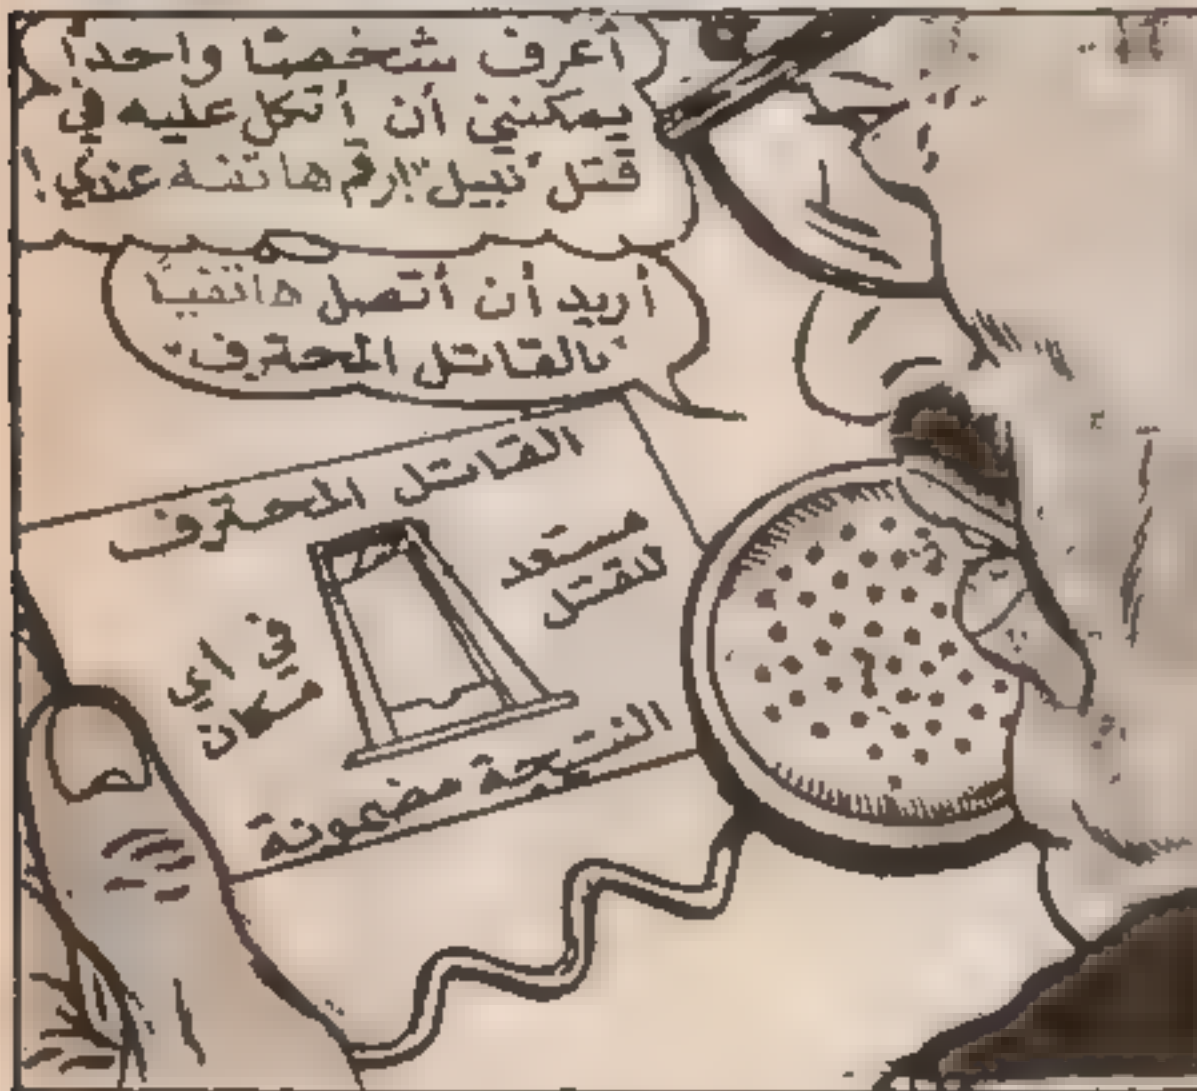 أعرف شخصًا واحدًا
يمكنني أن أتكل عليه في
قتل "نبيل"! رقم هاتفه عندي!
أريد أن أتصل هاتفيًا
"بالقاتل المحترف"
القاتل المحترف
مستعد
للقتل
في اي
مكان
النتيجة مضمونة